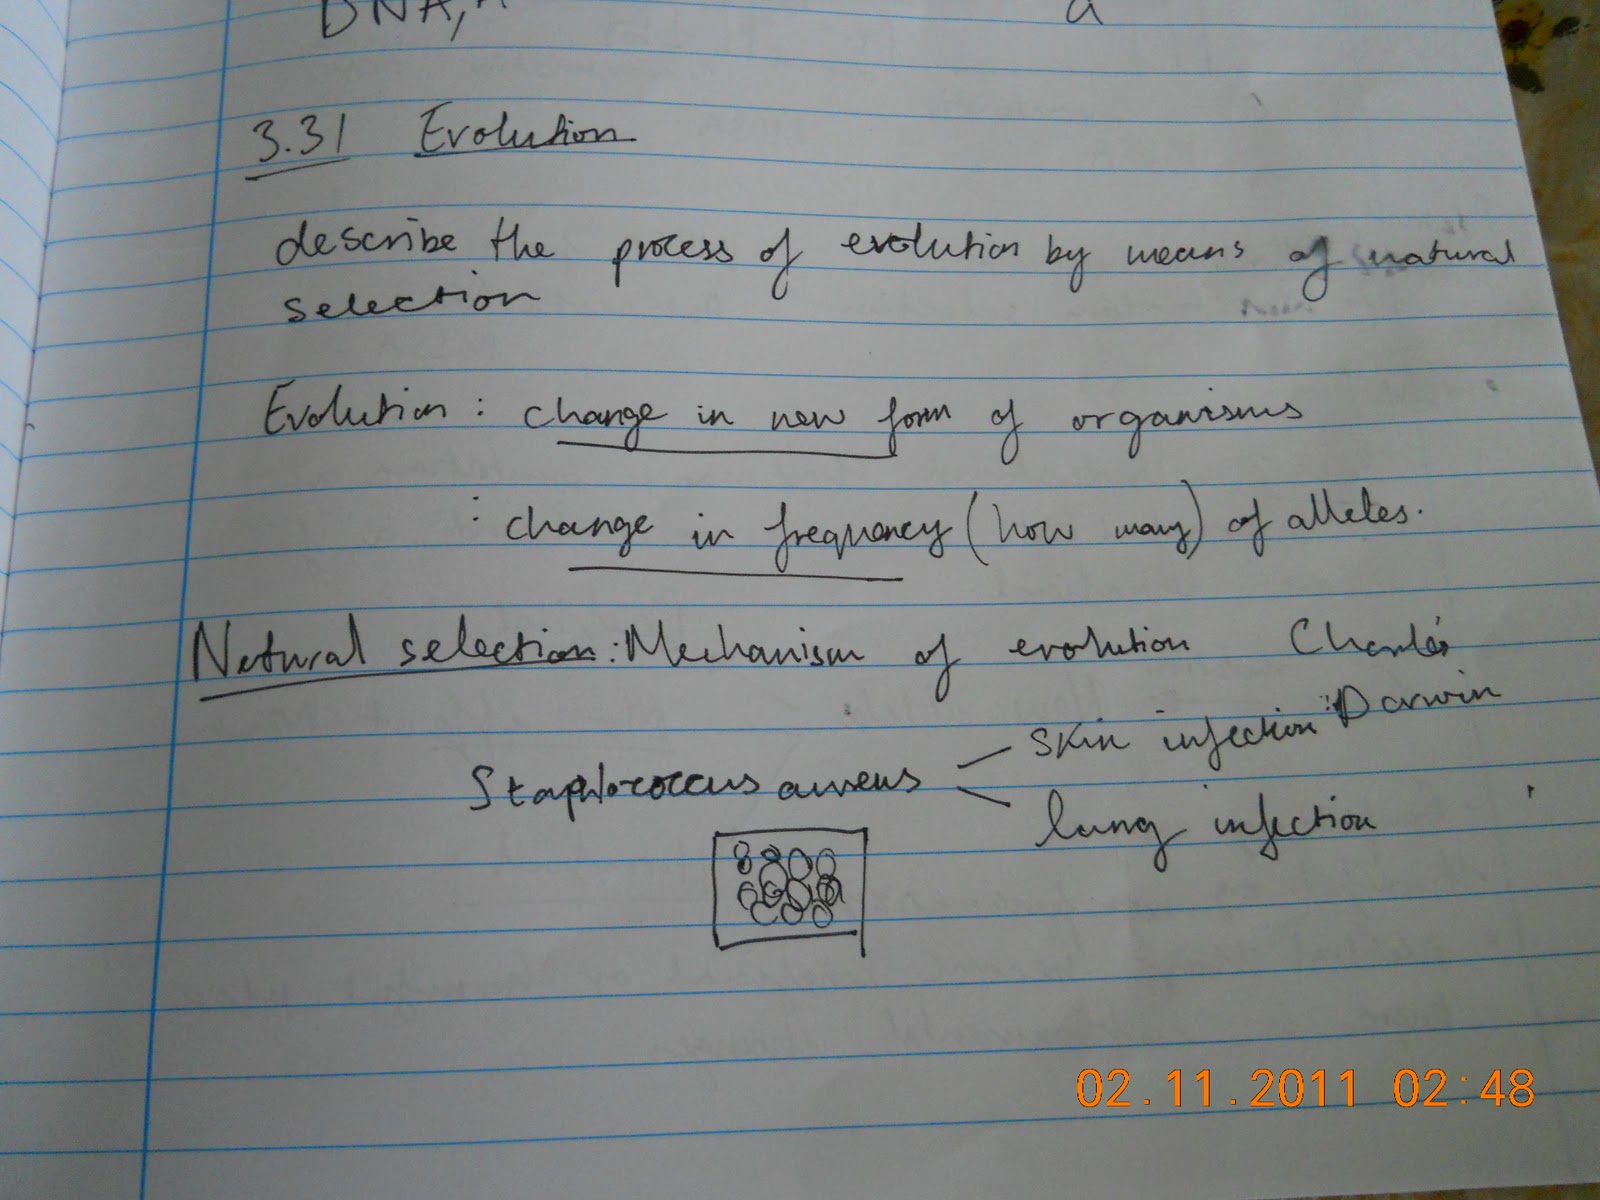 DNA,
a
3.31 Evolution
describe the process of evolution by means of natural
selection
Evolution : change in new form of organisms
: change in frequency (how many) of alleles.
Natural selection : Mechanism of evolution Charles
Darwin
Staphlococcus aureus
skin infection
lung infection
02.11.2011 02:48